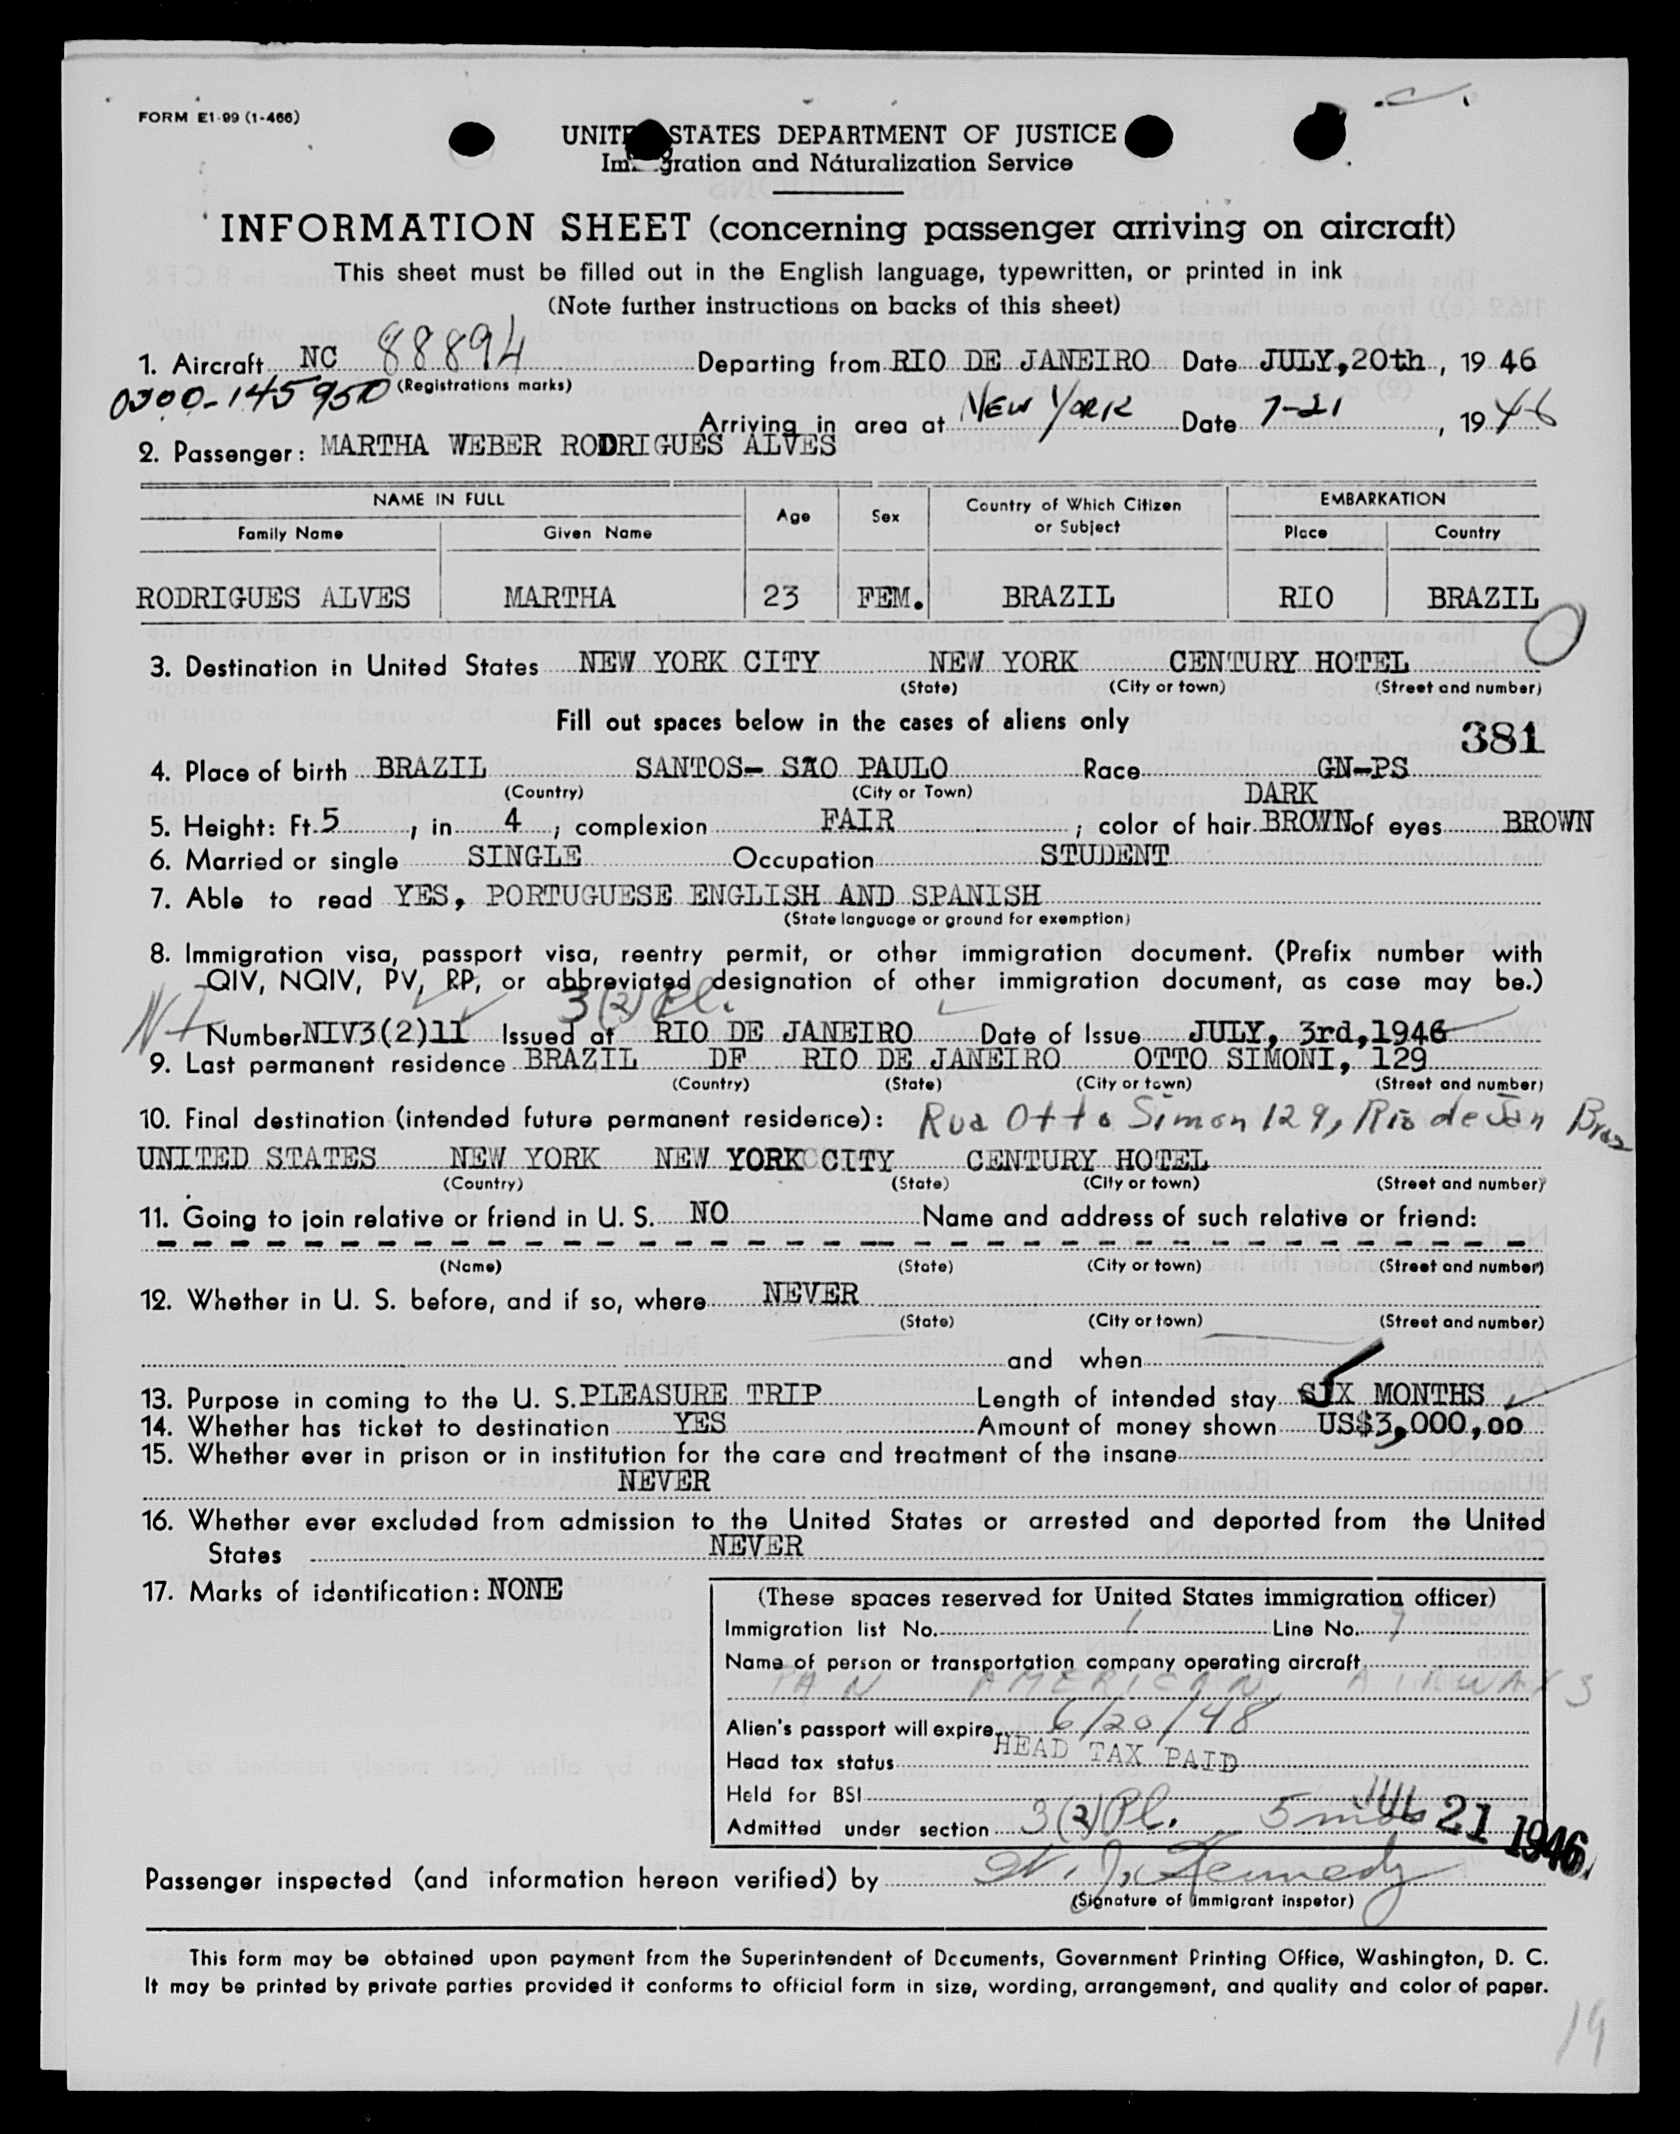 FORM E1-99 (1-466)
UNITED STATES DEPARTMENT OF JUSTICE
Immigration and Naturalization Service
INFORMATION SHEET (concerning passenger arriving on aircraft)
This sheet must be filled out in the English language, typewritten, or printed in ink
(Note further instructions on backs of this sheet)
1. Aircraft NC 88894 Departing from RIO DE JANEIRO Date JULY,20th, 19 46
0300-145950 (Registrations marks)
Arriving in area at NEW YORK Date 7-21, 19 46
2. Passenger: MARTHA WEBER RODRIGUES ALVES
NAME IN FULL Age Sex Country of Which Citizen or Subject EMBARKATION
Family Name Given Name Place Country
RODRIGUES ALVES MARTHA 23 FEM. BRAZIL RIO BRAZIL
3. Destination in United States NEW YORK CITY NEW YORK CENTURY HOTEL
(State) (City or town) (Street and number)
Fill out spaces below in the cases of aliens only
381
4. Place of birth BRAZIL SANTOS- SAO PAULO Race GN-PS
(Country) (City or Town) DARK
5. Height: Ft. 5, in 4; complexion FAIR; color of hair BROWN of eyes BROWN
6. Married or single SINGLE Occupation STUDENT
7. Able to read YES, PORTUGUESE ENGLISH AND SPANISH
(State language or ground for exemption)
8. Immigration visa, passport visa, reentry permit, or other immigration document. (Prefix number with
QIV, NQIV, PV, RP, or abbreviated designation of other immigration document, as case may be.)
3(2) Pl.
Number NIV3(2)11 Issued at RIO DE JANEIRO Date of Issue JULY, 3rd,1946
9. Last permanent residence BRAZIL DF RIO DE JANEIRO OTTO SIMONI, 129
(Country) (State) (City or town) (Street and number)
10. Final destination (intended future permanent residence): Rua Otto Simon 129, Rio de Jan Braz
UNITED STATES NEW YORK NEW YORK CITY CENTURY HOTEL
(Country) (State) (City or town) (Street and number)
11. Going to join relative or friend in U. S. NO Name and address of such relative or friend:
(Name) (State) (City or town) (Street and number)
12. Whether in U. S. before, and if so, where NEVER
(State) (City or town) (Street and number)
and when
13. Purpose in coming to the U. S. PLEASURE TRIP Length of intended stay SIX MONTHS
14. Whether has ticket to destination YES Amount of money shown US$3,000,00
15. Whether ever in prison or in institution for the care and treatment of the insane
NEVER
16. Whether ever excluded from admission to the United States or arrested and deported from the United
States NEVER
17. Marks of identification: NONE
(These spaces reserved for United States immigration officer)
Immigration list No. 1 Line No. 9
Name of person or transportation company operating aircraft
PAN AMERICAN AIRWAYS
Alien's passport will expire 6/20/48
Head tax status HEAD TAX PAID
Held for BSI
Admitted under section 3(2) Pl. 5 mos JUL 21 1946
Passenger inspected (and information hereon verified) by W. J. Kennedy
(Signature of immigrant inspetor)
This form may be obtained upon payment from the Superintendent of Documents, Government Printing Office, Washington, D. C.
It may be printed by private parties provided it conforms to official form in size, wording, arrangement, and quality and color of paper.
19